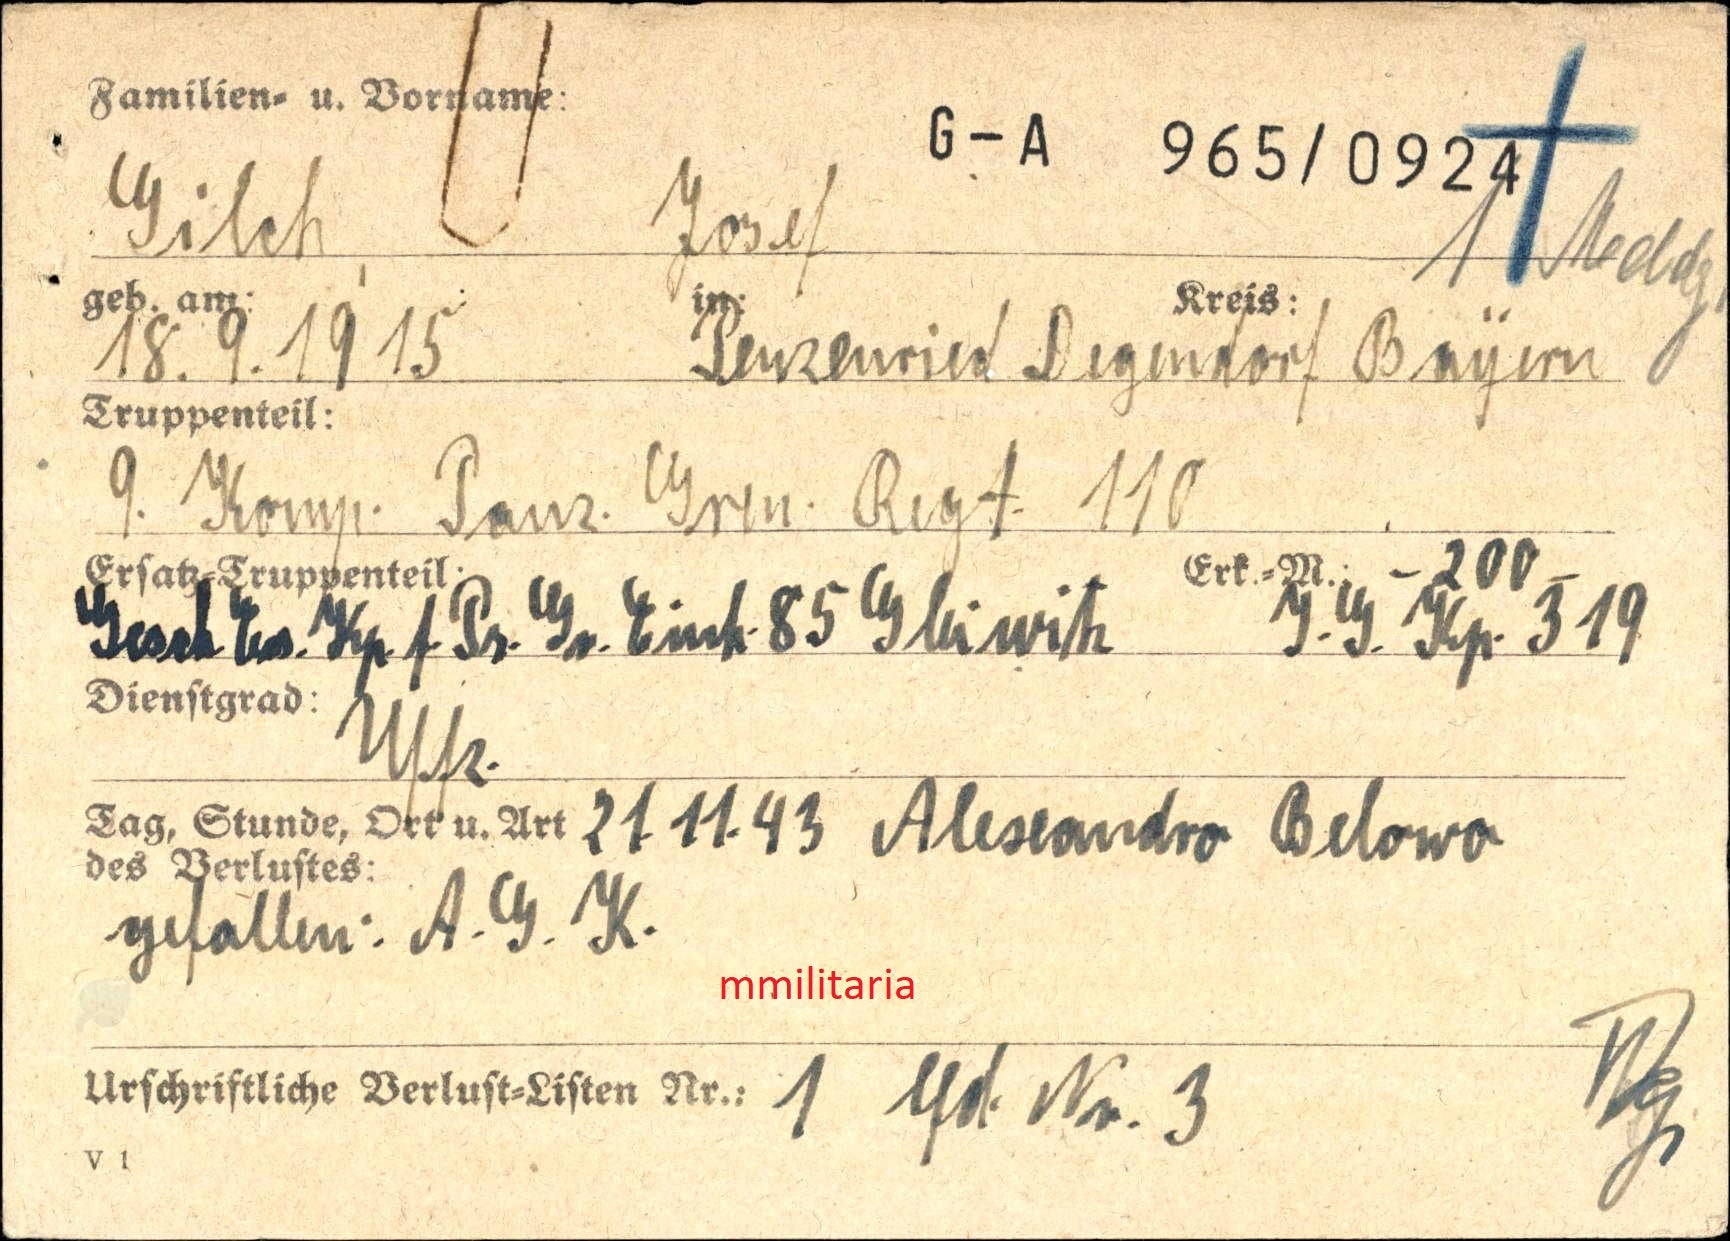 Familien- u. Vorname:
G-A 965/0924
Gilch Josef
1 Meldg.
geb. am: in: Kreis:
18. 9. 1915 Penzenried Degendorf Bayern
Truppenteil:
9. Komp. Panz. Gren. Regt. 110
Ersatz-Truppenteil: Erk.-M.: -200-
Gesch. Ers. Kp. f. Pz. Gr. Einh. 85 Gleiwitz J.G. Kp. 319
Dienstgrad:
Uffz.
Tag, Stunde, Ort u. Art 21.11.43 Alexeandro Belowo
des Verlustes:
gefallen: A.G.K.
mmilitaria
Urschriftliche Verlust-Listen Nr.: 1 lfd. Nr. 3
V 1